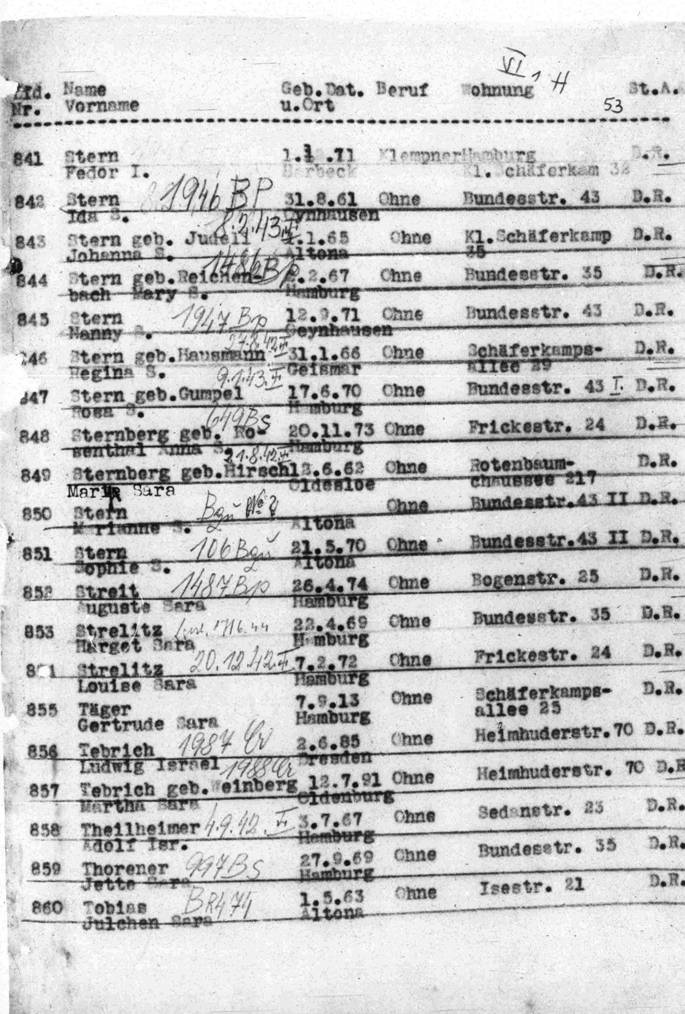 VI 1 H
Lfd. Name Geb.Dat. Beruf Wohnung St.A.
Nr. Vorname u.Ort 53
841 Stern 71 Klempner Hamburg D.R.
Fedor I. Barbeck Kl. Schäferkam 32
842 Stern 1946 BP 31.8.61 Ohne Bundesstr. 43 D.R.
Ida S. 8.2.43 Oynhausen
843 Stern geb. Judell 1.1.65 Ohne Kl.Schäferkamp D.R.
Johanna S. Altona 35
844 Stern geb.Reichen- 2.67 Ohne Bundesstr. 35 D.R.
bach Mary S. Hamburg
845 Stern 1947 Bp 12.9.71 Ohne Bundesstr. 43 D.R.
Nanny S. Oeynhausen
846 Stern geb.Hausmann 31.1.66 Ohne Schäferkamps- D.R.
Regina S. 9.1.43 Geismar allee 29
847 Stern geb.Gumpel 17.6.70 Ohne Bundesstr. 43 I. D.R.
Rosa S. Hamburg
848 Sternberg geb. Ro- 20.11.73 Ohne Frickestr. 24 D.R.
senthal Anna S. 21.8.42 Hamburg
849 Sternberg geb.Hirschl 2.6.62 Ohne Rotenbaum- D.R.
Marie Sara Oldesloe chaussee 217
850 Stern Ohne Bundesstr.43 II D.R.
Marianne S. Altona
851 Stern 106 Bgü 21.5.70 Ohne Bundesstr.43 II D.R.
Sophie S. Altona
852 Streit 1487 Bp 26.4.74 Ohne Bogenstr. 25 D.R.
Auguste Sara Hamburg
853 Strelitz 22.4.69 Ohne Bundesstr. 35 D.R.
Marget Sara Hamburg
Strelitz 20.12.42 7.2.72 Ohne Frickestr. 24 D.R.
Louise Sara Hamburg
855 Täger 7.9.13 Ohne Schäferkamps- D.R.
Gertrude Sara Hamburg allee 25
856 Tebrich 1987 Cr 2.6.85 Ohne Heimhuderstr.70 D.R.
Ludwig Israel 1988 Cr Dresden
857 Tebrich geb.Weinberg 12.7.91 Ohne Heimhuderstr. 70 D.R
Martha Sara Oldenburg
858 Theilheimer 4.9.42 3.7.67 Ohne Sedanstr. 23 D.R.
Adolf Isr. Hamburg
859 Thorener 997 BS 27.9.69 Ohne Bundesstr. 35 D.R.
Jette Sara Hamburg
860 Tobias 1.5.63 Ohne Isestr. 21 D.R.
Julchen Sara Altona